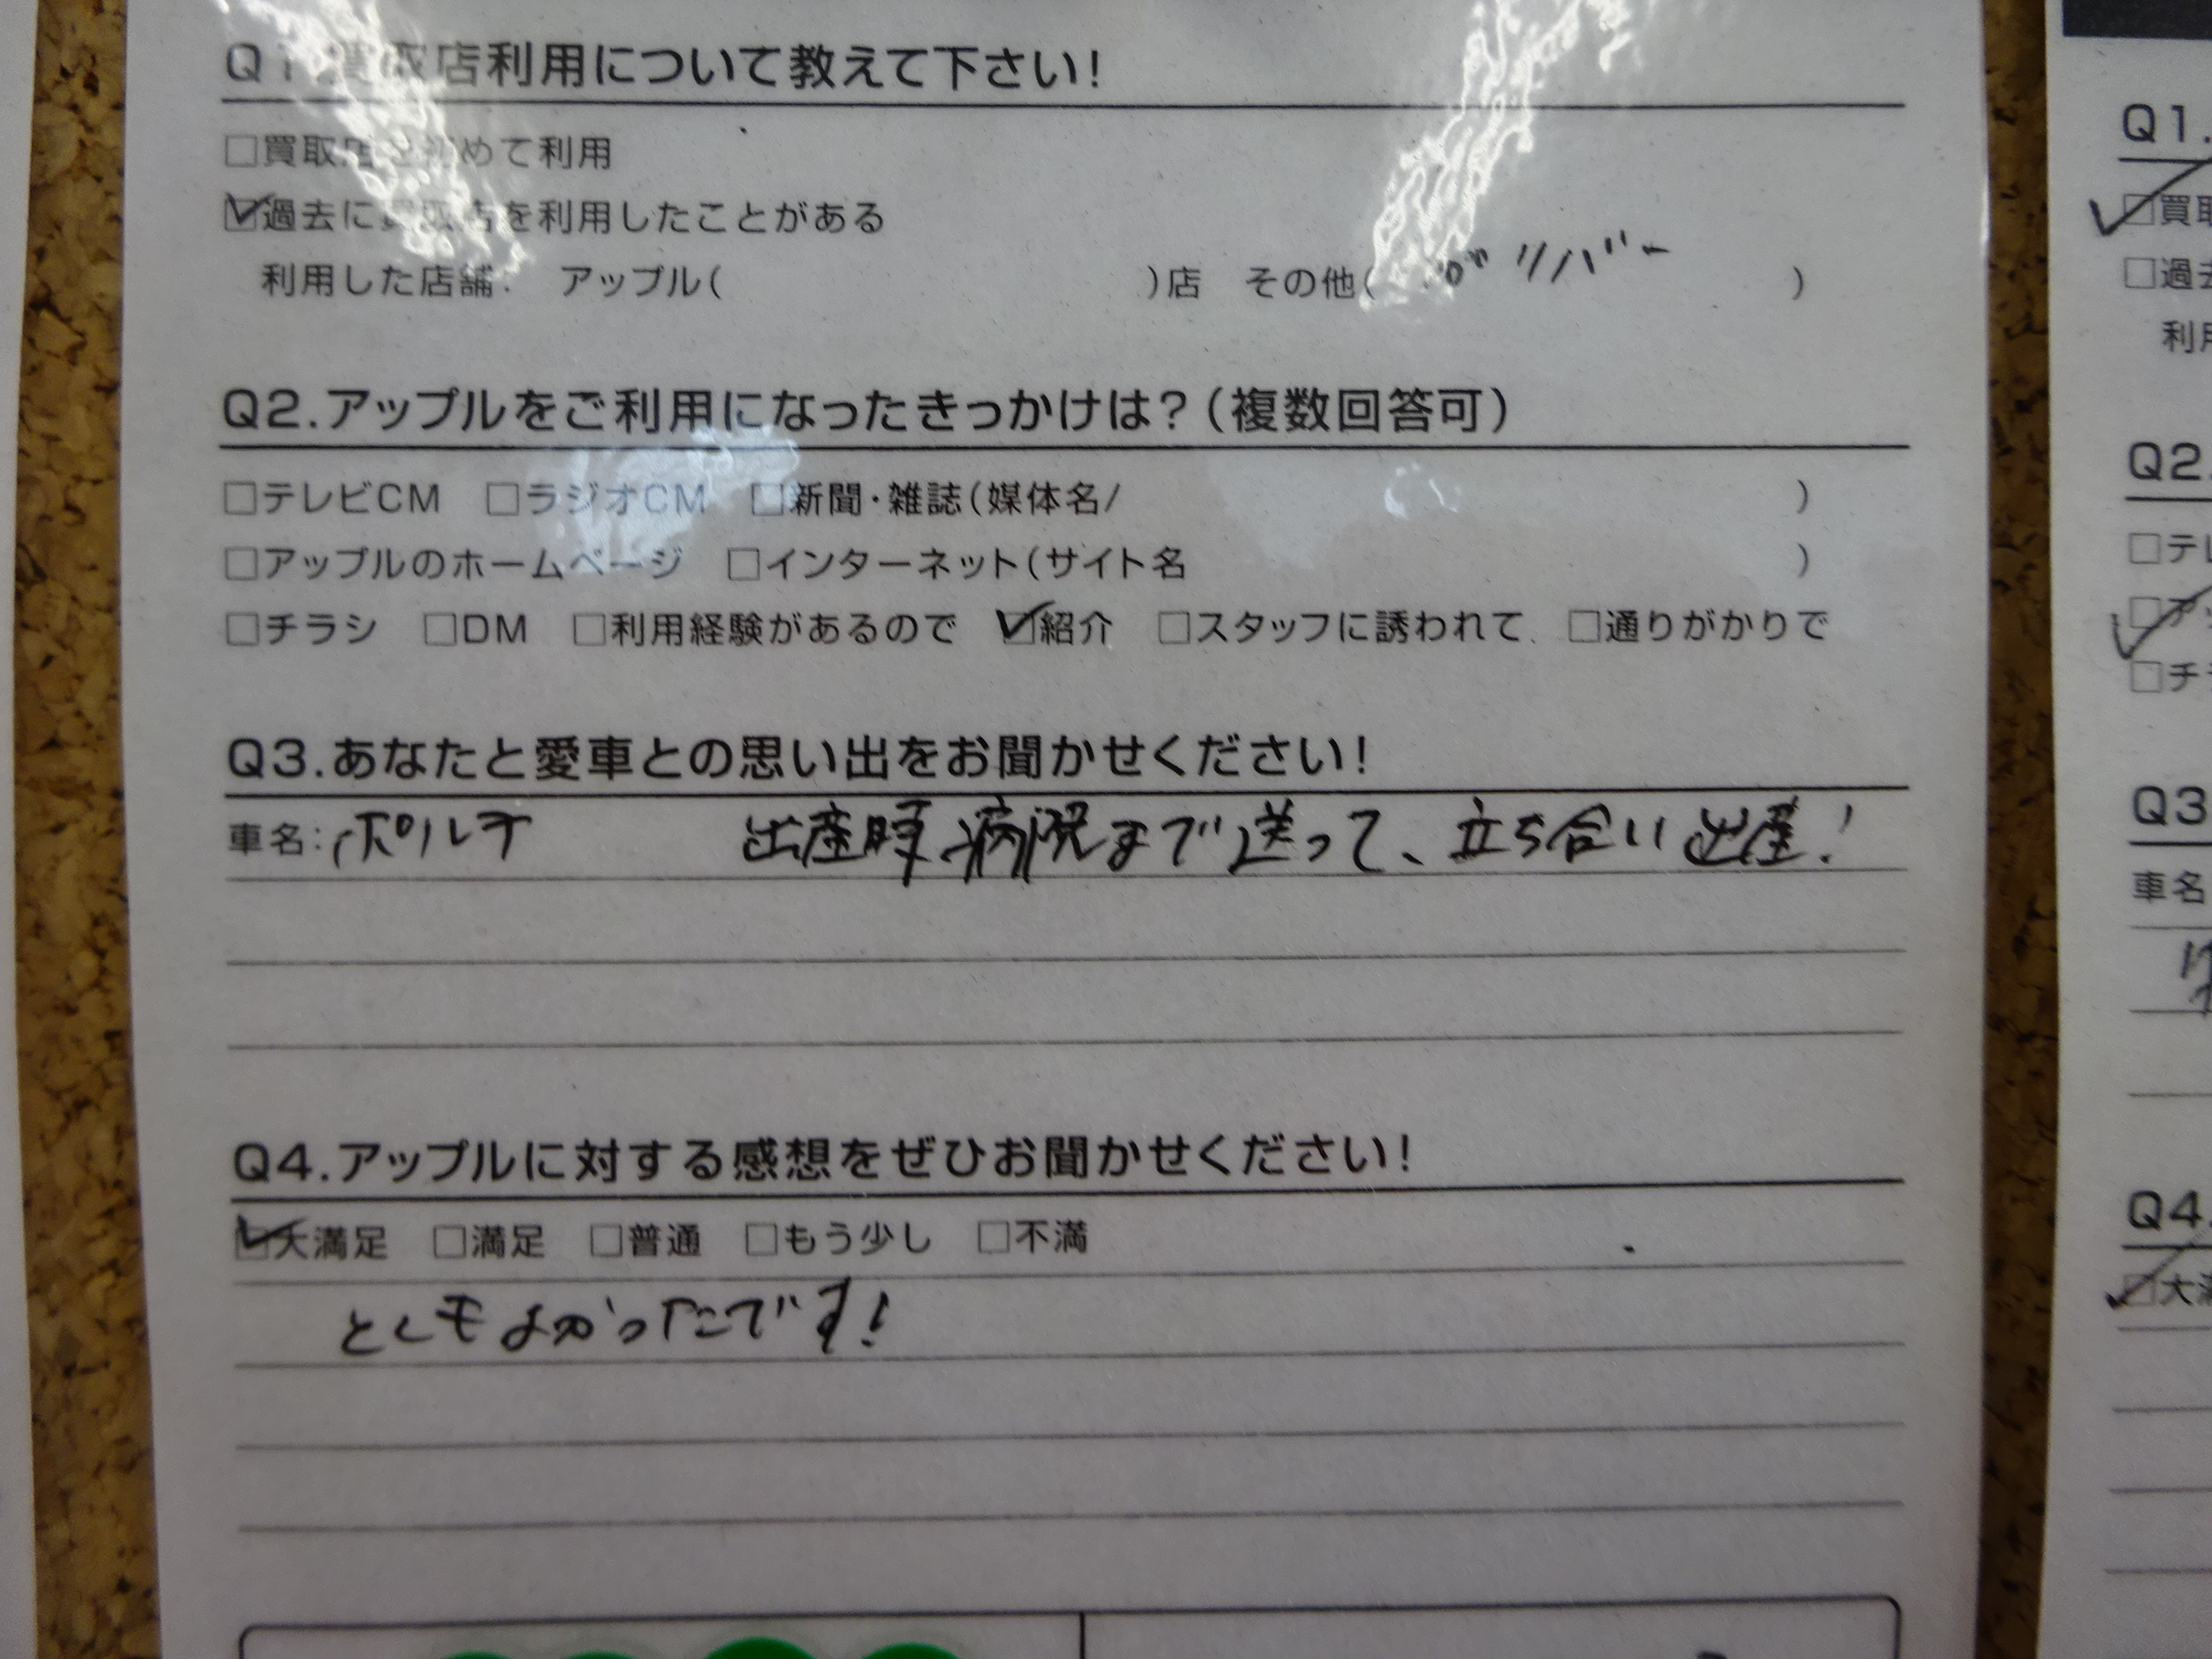 Q1.買取店利用について教えて下さい!
□買取店を初めて利用
☑過去に買取店を利用したことがある
利用した店舗: アップル( )店 その他( バー )
Q2.アップルをご利用になったきっかけは?(複数回答可)
□テレビCM □ラジオCM □新聞・雑誌(媒体名/ )
□アップルのホームページ □インターネット(サイト名 )
□チラシ □DM □利用経験があるので ☑紹介 □スタッフに誘われて □通りがかりで
Q3.あなたと愛車との思い出をお聞かせください!
車名:ポルテ 出産時病院まで送って、立ち合い出産!
Q4.アップルに対する感想をぜひお聞かせください!
☑大満足 □満足 □普通 □もう少し □不満
とてもよかったです!
Q1.
☑買取
□過去
利用
Q2.
□テレ
☑アッ
□チラ
Q3
車名
Q4.
☑大満